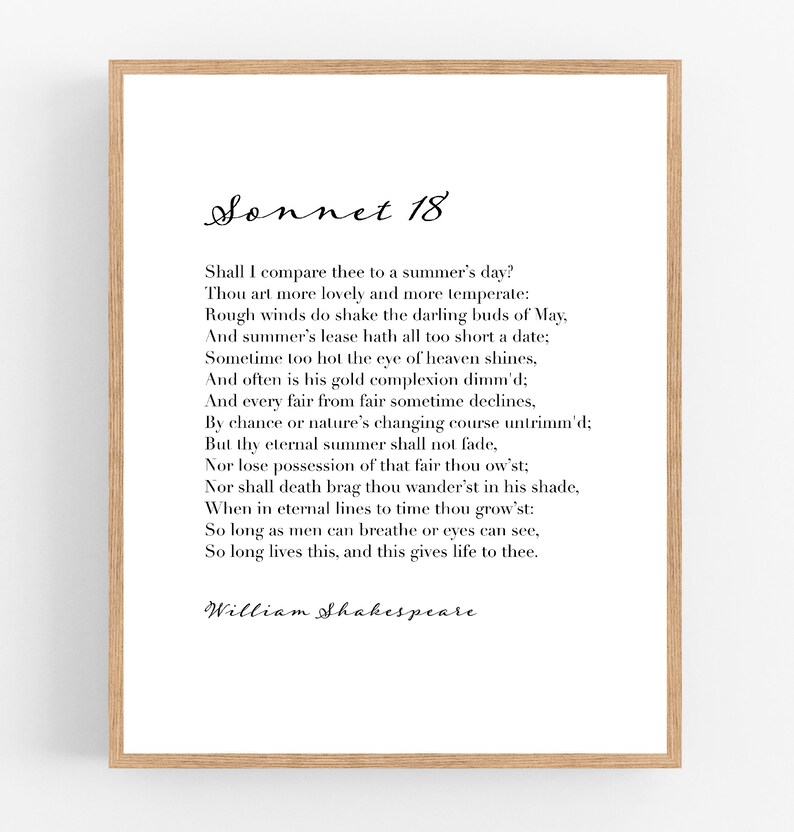 Sonnet 18
Shall I compare thee to a summer’s day?
Thou art more lovely and more temperate:
Rough winds do shake the darling buds of May,
And summer’s lease hath all too short a date;
Sometime too hot the eye of heaven shines,
And often is his gold complexion dimm'd;
And every fair from fair sometime declines,
By chance or nature’s changing course untrimm'd;
But thy eternal summer shall not fade,
Nor lose possession of that fair thou ow’st;
Nor shall death brag thou wander’st in his shade,
When in eternal lines to time thou grow’st:
So long as men can breathe or eyes can see,
So long lives this, and this gives life to thee.
William Shakespeare